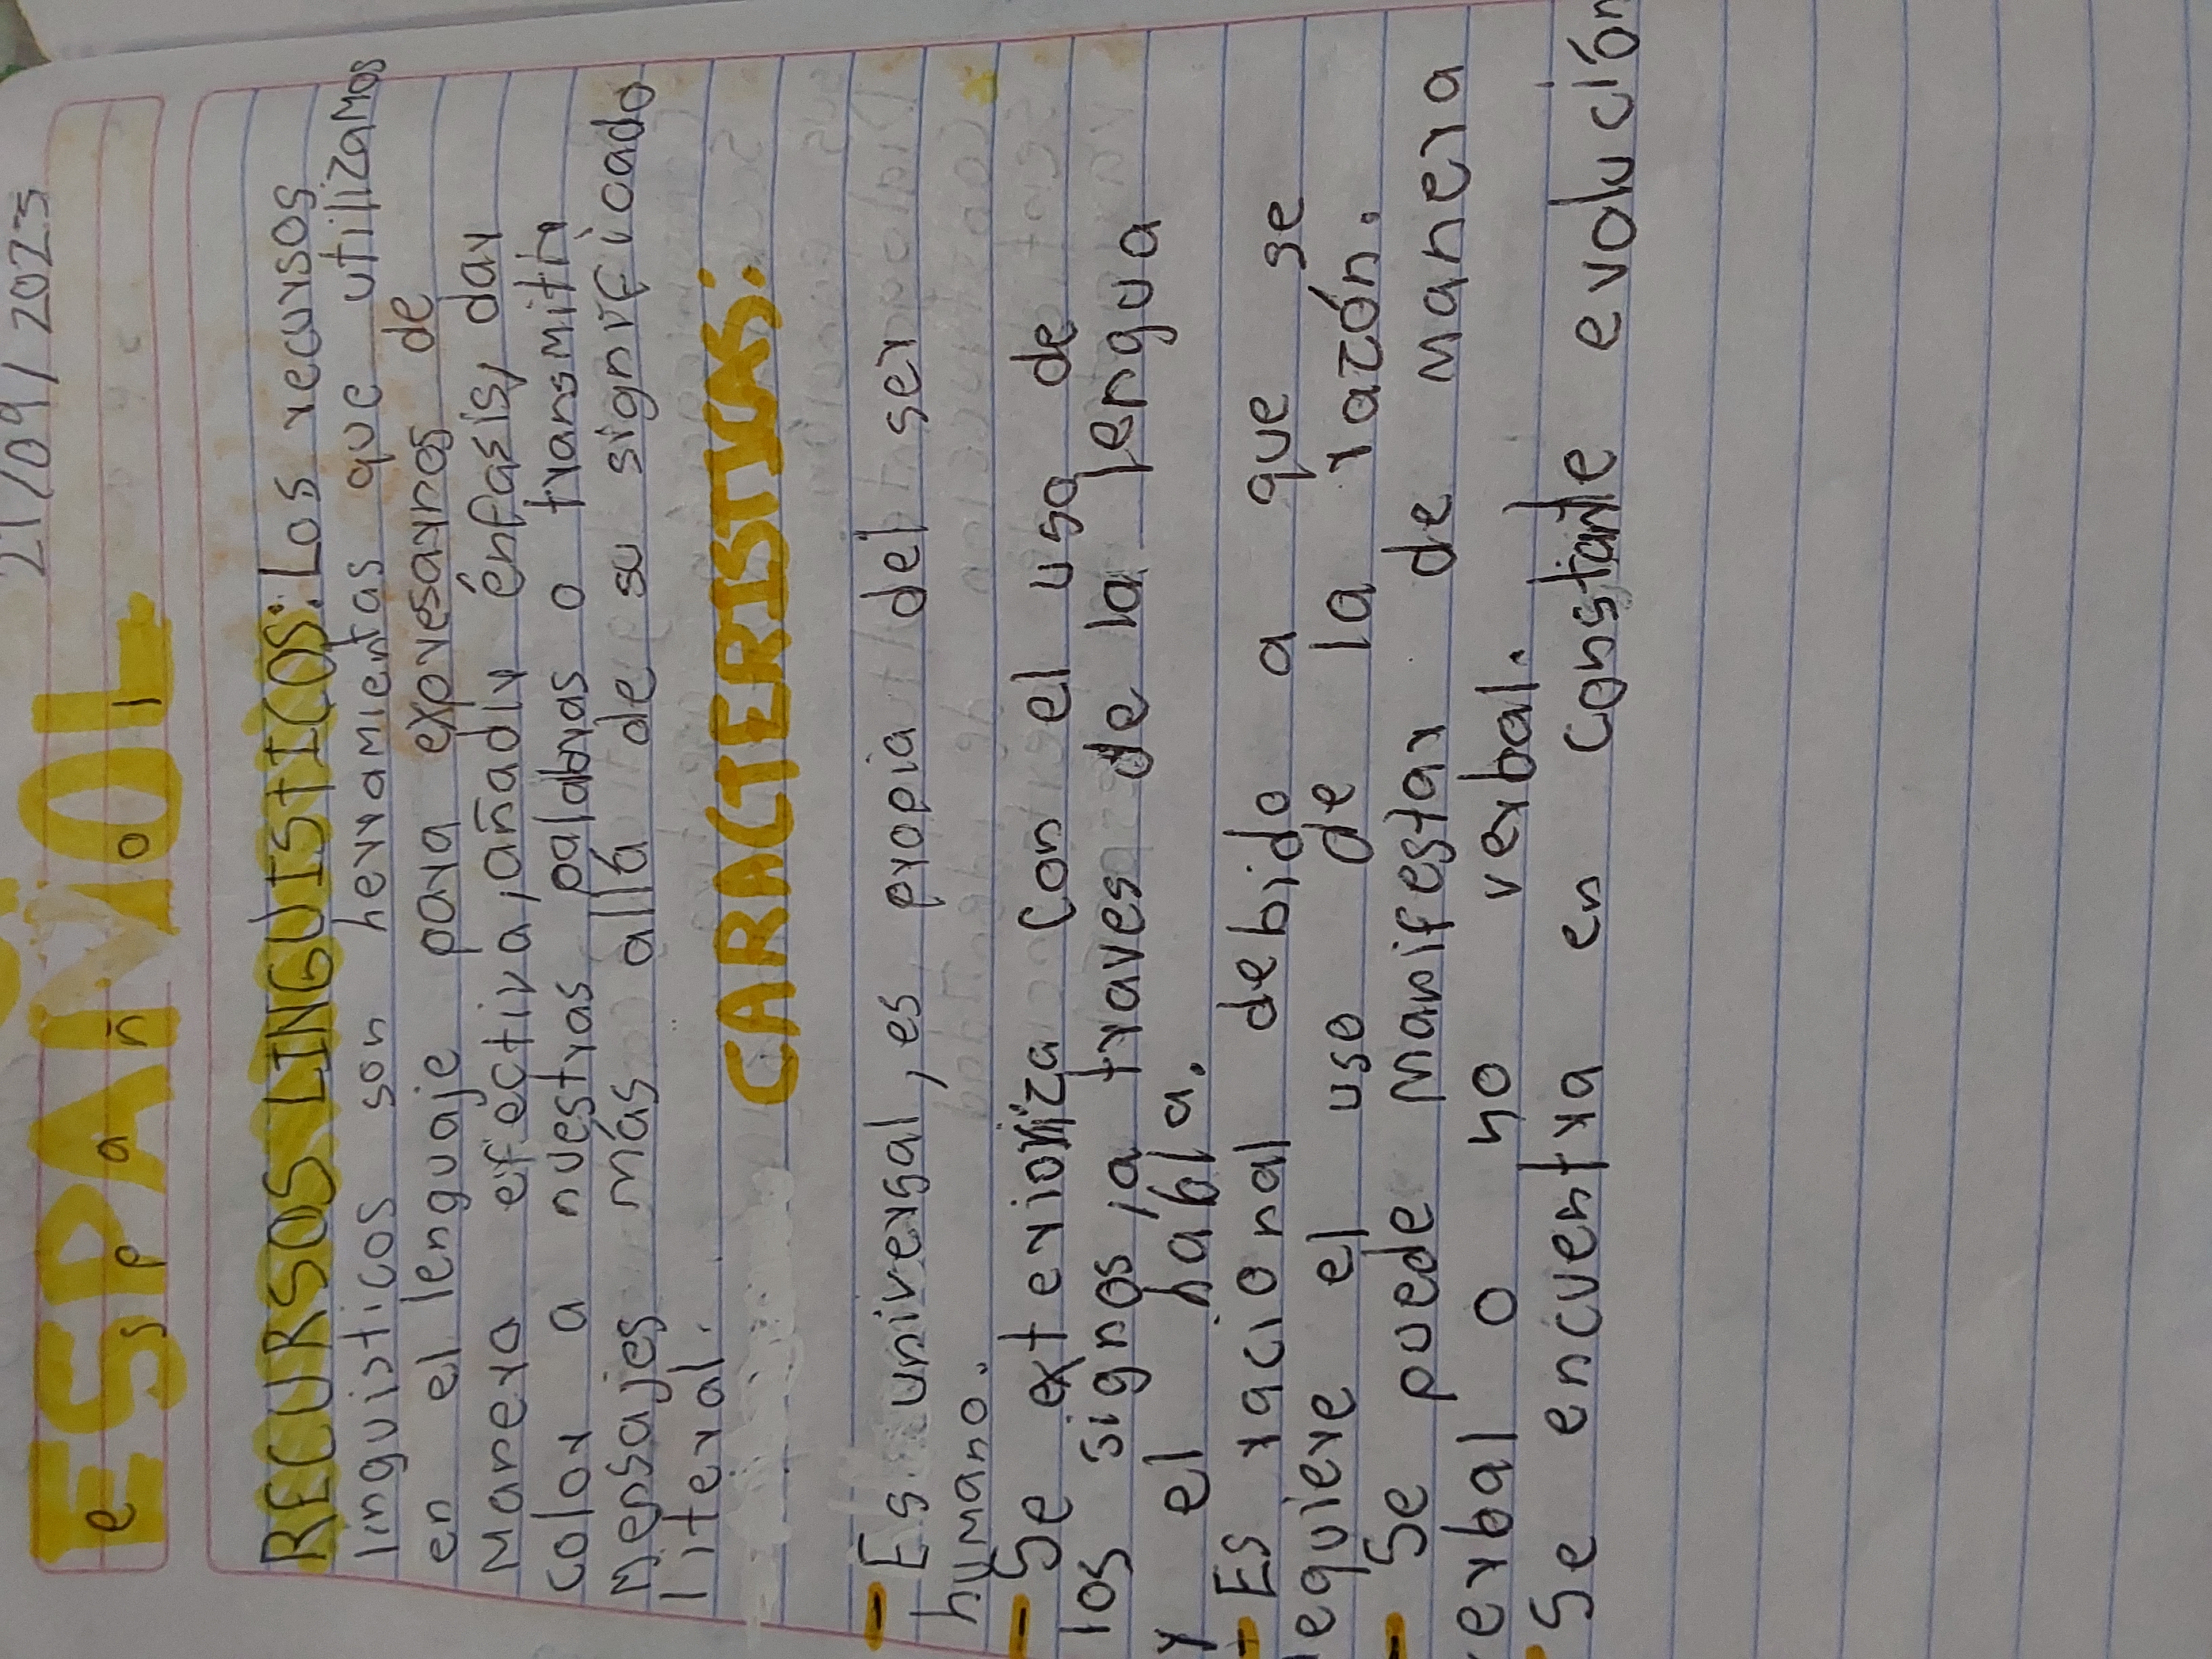 21/09/2023
ESPAÑOL
español
RECURSOS LINGUISTICOS: Los recursos
linguisticos son herramientas que utilizamos
en el lenguaje para expresarnos de
manera efectiva, añadir énfasis, dar
color a nuestras palabras o transmitir
mensajes más allá de su significado
literal.
CARACTERISTICAS:
- Es universal, es propia del ser
humano.
- Se exterioriza con el uso de
los signos, a traves de la lengua
y el habla.
- Es racional debido a que se
requiere el uso de la razón.
- Se puede manifestar de manera
verbal o no verbal.
- Se encuentra en constante evolución